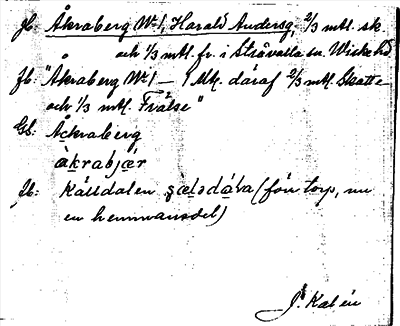 Jb. Åkraberg No 1, Harald Andersg. 2/3 mtl. sk.
och 1/3 mtl. fr. i Stråvalla sn. Wiske hd.
Jb: "Åkraberg No 1 — 1 Mtl. däraf 2/3 mtl. Skatte
och 1/3 mtl. Frälse"
Gb: Åckraberg
àkrabjær
Jb: Källdalen (förr torp, nu
en hemmansdel)
J. Kalén